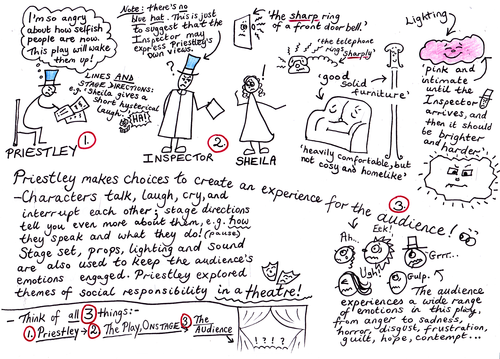 I'm so angry
about how selfish
people are now.
This play will wake
them up!
Note: there's no
blue hat. This is just
to suggest that the
Inspector may
express Priestley's
own views.
LINES AND
STAGE DIRECTIONS:
e.g. 'Sheila gives a
short hysterical
laugh.'
HA!
1.
PRIESTLEY
?
INSPECTOR
2.
SHEILA
'the sharp ring
of a front doorbell.'
'the telephone
rings sharply'
'good
solid
furniture'
'heavily comfortable, but
not cosy and homelike'
Lighting
'pink and
intimate
until the
Inspector
arrives, and
then it should
be brighter
and harder'.
Priestley makes choices to create an experience for the audience!
- Characters talk, laugh, cry, and
interrupt each other; stage directions
tell you even more about them, e.g. how
they speak and what they do! (pause)
Stage set, props, lighting and sound
are also used to keep the audience's
emotions engaged. Priestley explored
themes of social responsibility in a theatre!
- Think of all 3 things:-
1. Priestley → 2. The Play, ONSTAGE → 3. The
Audience
! ? ? !
3.
Eek!
Ah..
Grrr...
Ugh
Gulp.
The audience
experiences a wide range
of emotions in this play,
from anger to sadness,
horror, disgust, frustration,
guilt, hope, contempt...